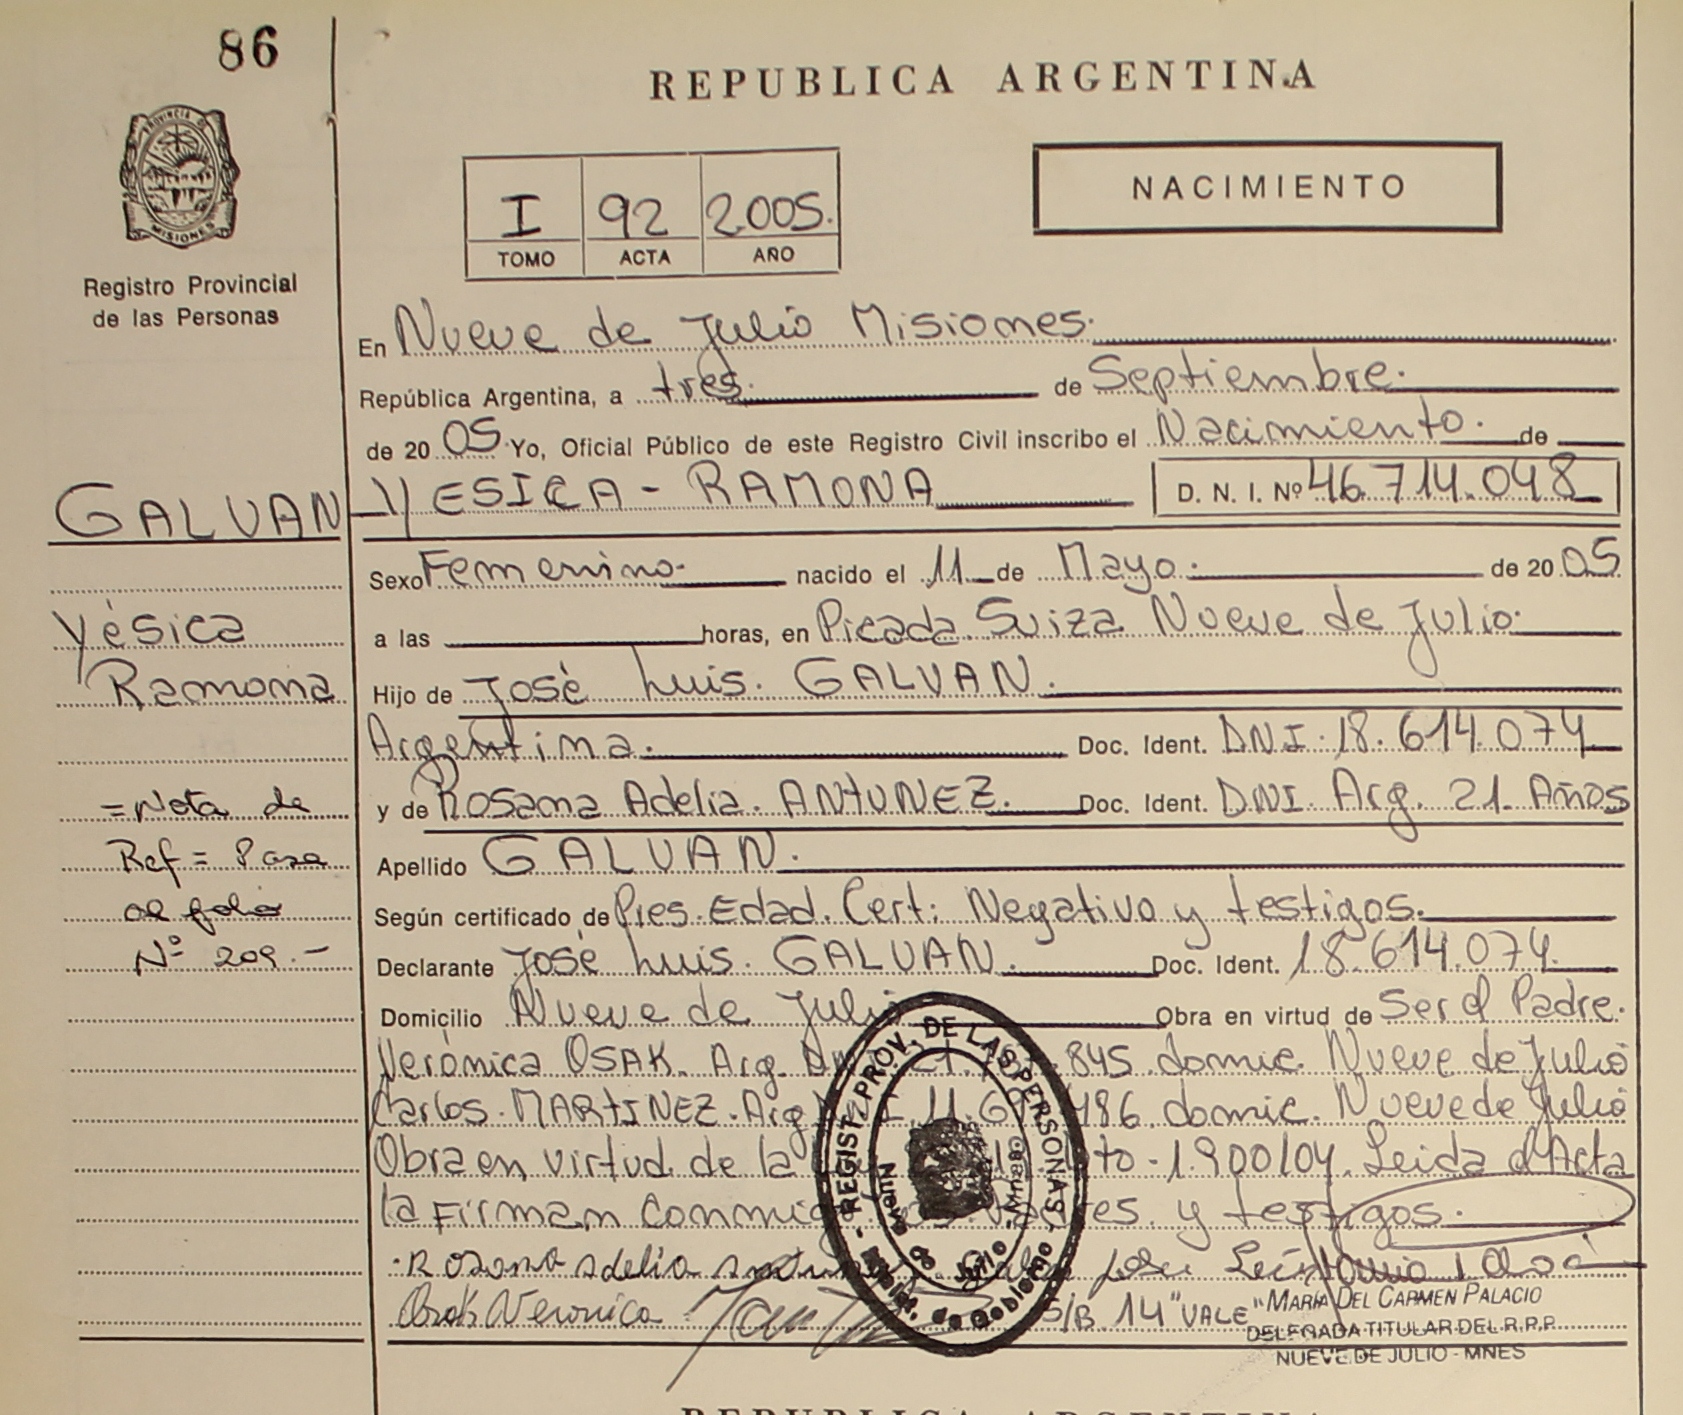 86
REPUBLICA ARGENTINA
PROVINCIA DE
MISIONES
Registro Provincial
de las Personas
I 92 2005.
TOMO ACTA AÑO
NACIMIENTO
En Nueve de Julio Misiones.
República Argentina, a tres. de Septiembre.
de 20 05 Yo, Oficial Público de este Registro Civil inscribo el Nacimiento. de
GALVAN YESICA - RAMONA D. N. I. Nº 46.714.048
Sexo Femenino. nacido el 11 de Mayo. de 20 05
Yésica
Ramona
a las horas, en Picada Suiza Nueve de Julio.
Hijo de José Luis. GALVAN.
Argentina. Doc. Ident. DNI. 18.614.074
y de Rosana Adelia. ANTUNEZ. Doc. Ident. DNI. Arg. 21 Años
Apellido GALVAN.
=Nota de
Ref = Pasa
al folio
Nº 209.-
Según certificado de Pres. Edad. Cert: Negativo y testigos.
Declarante José Luis. GALVAN. Doc. Ident. 18.614.074.
Domicilio Nueve de Julio Obra en virtud de Ser el Padre.
Verónica OSAK. Arg. 845 domic. Nueve de Julio
Carlos. MARTINEZ. Arg 186 domic. Nueve de Julio
Obra en virtud de la 1.900/04. Leida el Acta
la Firman conmigo y testigos.
Rosana adelia
Osak Veronica S/B 14 "VALE"
MARIA DEL CARMEN PALACIO
DELEGADA TITULAR DEL R.P.P.
NUEVE DE JULIO - MNES
REGIST. PROV. DE LAS PERSONAS
Minist. de Gobierno
Nueve de Julio Mnes
REPUBLICA ARGENTINA